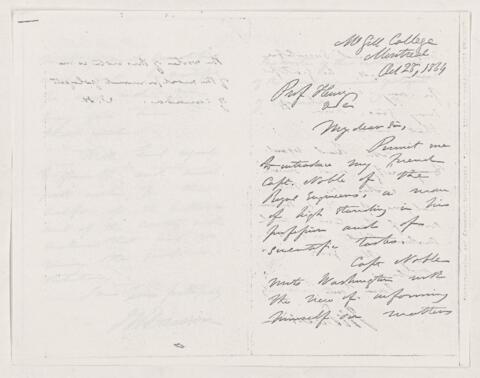 The writer of this note is one
of the most prominent geologist
of Canada. J. H
McGill College
Montreal
Oct 25, 1864
Prof Henry
My dear Sir,
Permit me
to introduce my friend
Capt. Noble of the
Royal Engineers, a man
of high standing in his
profession and of
scientific tastes.
Capt Noble
visits Washington with
the view of informing
himself on matters